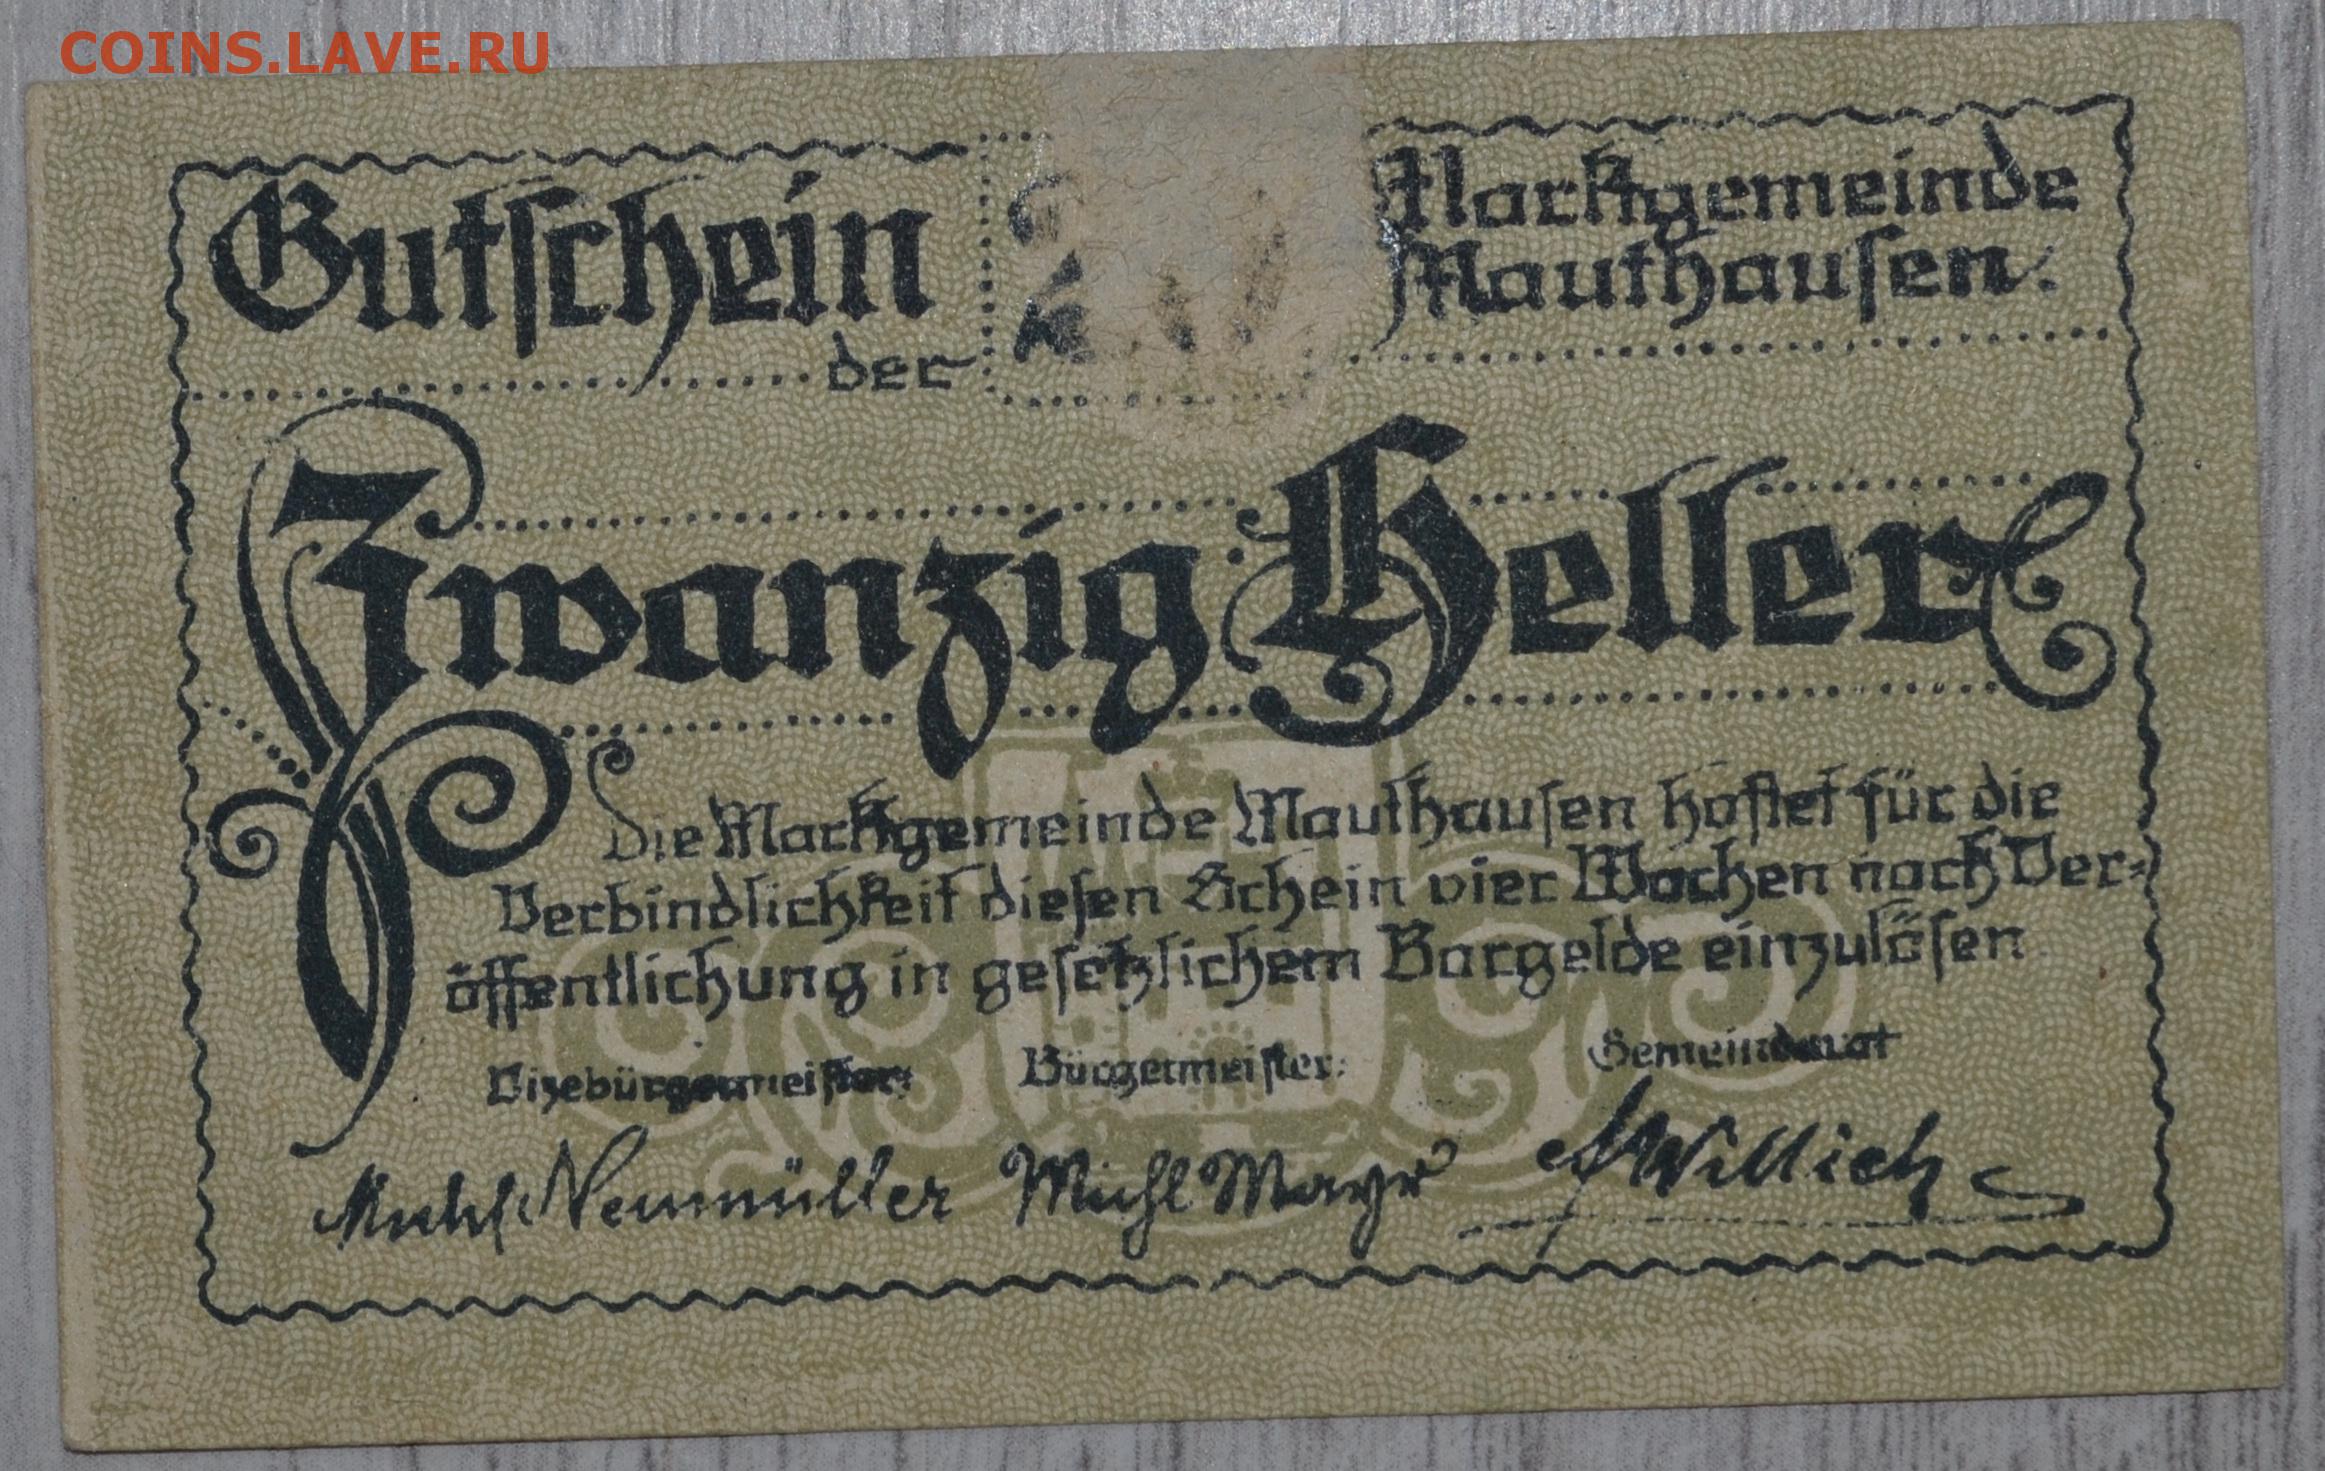 COINS.LAVE.RU
Gutschein
der
Marktgemeinde
Mauthausen.
Zwanzig Heller
Die Marktgemeinde Mauthausen haftet für die
Verbindlichkeit diesen Schein vier Wochen nach Ver=
öffentlichung in gesetzlichem Bargelde einzulösen
Vizebürgermeister: Bürgermeister: Gemeinderat
Neumüller Michl Mayr Willich